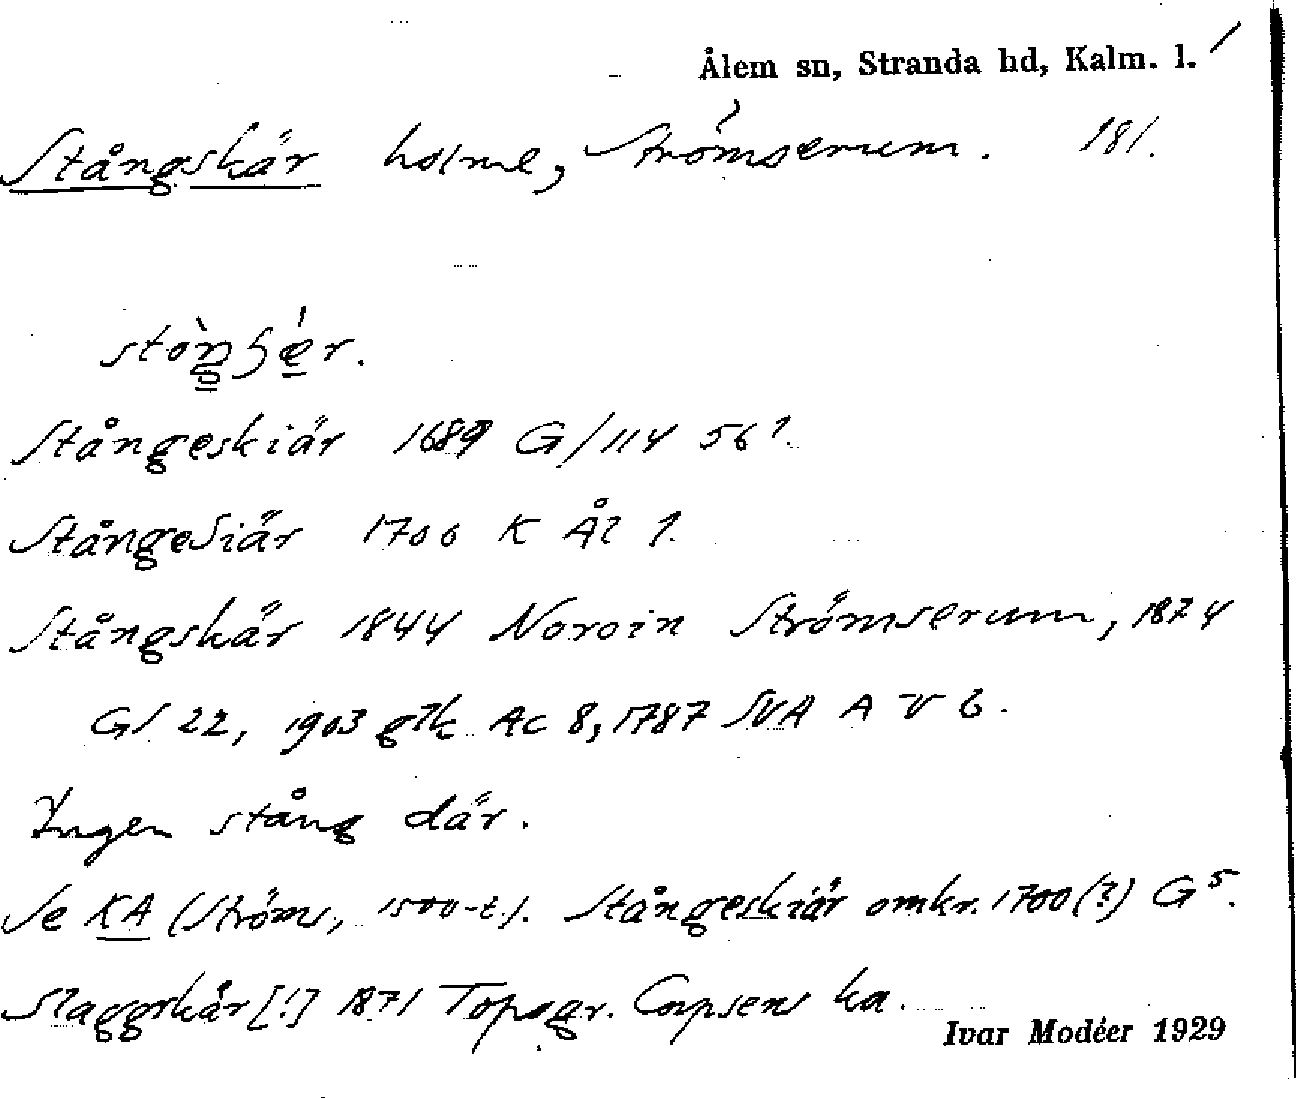 Ålem sn, Stranda hd, Kalm. l.
Stångskär holme, Strömserum. 181.
Stångeskiär 1689 G/114 56 1.
StångeSiär 1706 K Ål 1.
Stångskär 1844 Noroin Strömserum, 1874
G/ 22, 1903 glk Ac 8, 1787 SVA A V 6.
Ingen stång där.
Se KA (Ströms, 1500-t.). Stångeskiär omkr. 1700 (?) G5.
Slaggskär [!] 1871 Topogr. Corpsens ka.
Ivar Modéer 1929